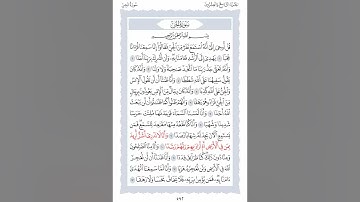 سورة الجن
الجزء التاسع والعشرون
سُورَةُ الْجِنِّ
بِسْمِ اللَّهِ الرَّحْمَٰنِ الرَّحِيمِ
قُلْ أُوحِيَ إِلَيَّ أَنَّهُ اسْتَمَعَ نَفَرٌ مِّنَ الْجِنِّ فَقَالُوا إِنَّا سَمِعْنَا قُرْآنًا
عَجَبًا ۝ يَهْدِي إِلَى الرُّشْدِ فَآمَنَّا بِهِ وَلَن نُّشْرِكَ بِرَبِّنَا أَحَدًا ۝
وَأَنَّهُ تَعَالَىٰ جَدُّ رَبِّنَا مَا اتَّخَذَ صَاحِبَةً وَلَا وَلَدًا ۝ وَأَنَّهُ كَانَ
يَقُولُ سَفِيهُنَا عَلَى اللَّهِ شَطَطًا ۝ وَأَنَّا ظَنَنَّا أَن لَّن تَقُولَ الْإِنسُ
وَالْجِنُّ عَلَى اللَّهِ كَذِبًا ۝ وَأَنَّهُ كَانَ رِجَالٌ مِّنَ الْإِنسِ يَعُوذُونَ بِرِجَالٍ
مِّنَ الْجِنِّ فَزَادُوهُمْ رَهَقًا ۝ وَأَنَّهُمْ ظَنُّوا كَمَا ظَنَنتُمْ أَن لَّن يَبْعَثَ
اللَّهُ أَحَدًا ۝ وَأَنَّا لَمَسْنَا السَّمَاءَ فَوَجَدْنَاهَا مُلِئَتْ حَرَسًا
شَدِيدًا وَشُهُبًا ۝ وَأَنَّا كُنَّا نَقْعُدُ مِنْهَا مَقَاعِدَ لِلسَّمْعِ فَمَن
يَسْتَمِعِ الْآنَ يَجِدْ لَهُ شِهَابًا رَّصَدًا ۝ وَأَنَّا لَا نَدْرِي أَشَرٌّ أُرِيدَ
بِمَن فِي الْأَرْضِ أَمْ أَرَادَ بِهِمْ رَبُّهُمْ رَشَدًا ۝ وَأَنَّا مِنَّا الصَّالِحُونَ
وَمِنَّا دُونَ ذَٰلِكَ كُنَّا طَرَائِقَ قِدَدًا ۝ وَأَنَّا ظَنَنَّا أَن لَّن نُّعْجِزَ
اللَّهَ فِي الْأَرْضِ وَلَن نُّعْجِزَهُ هَرَبًا ۝ وَأَنَّا لَمَّا سَمِعْنَا الْهُدَىٰ
آمَنَّا بِهِ فَمَن يُؤْمِن بِرَبِّهِ فَلَا يَخَافُ بَخْسًا وَلَا رَهَقًا ۝